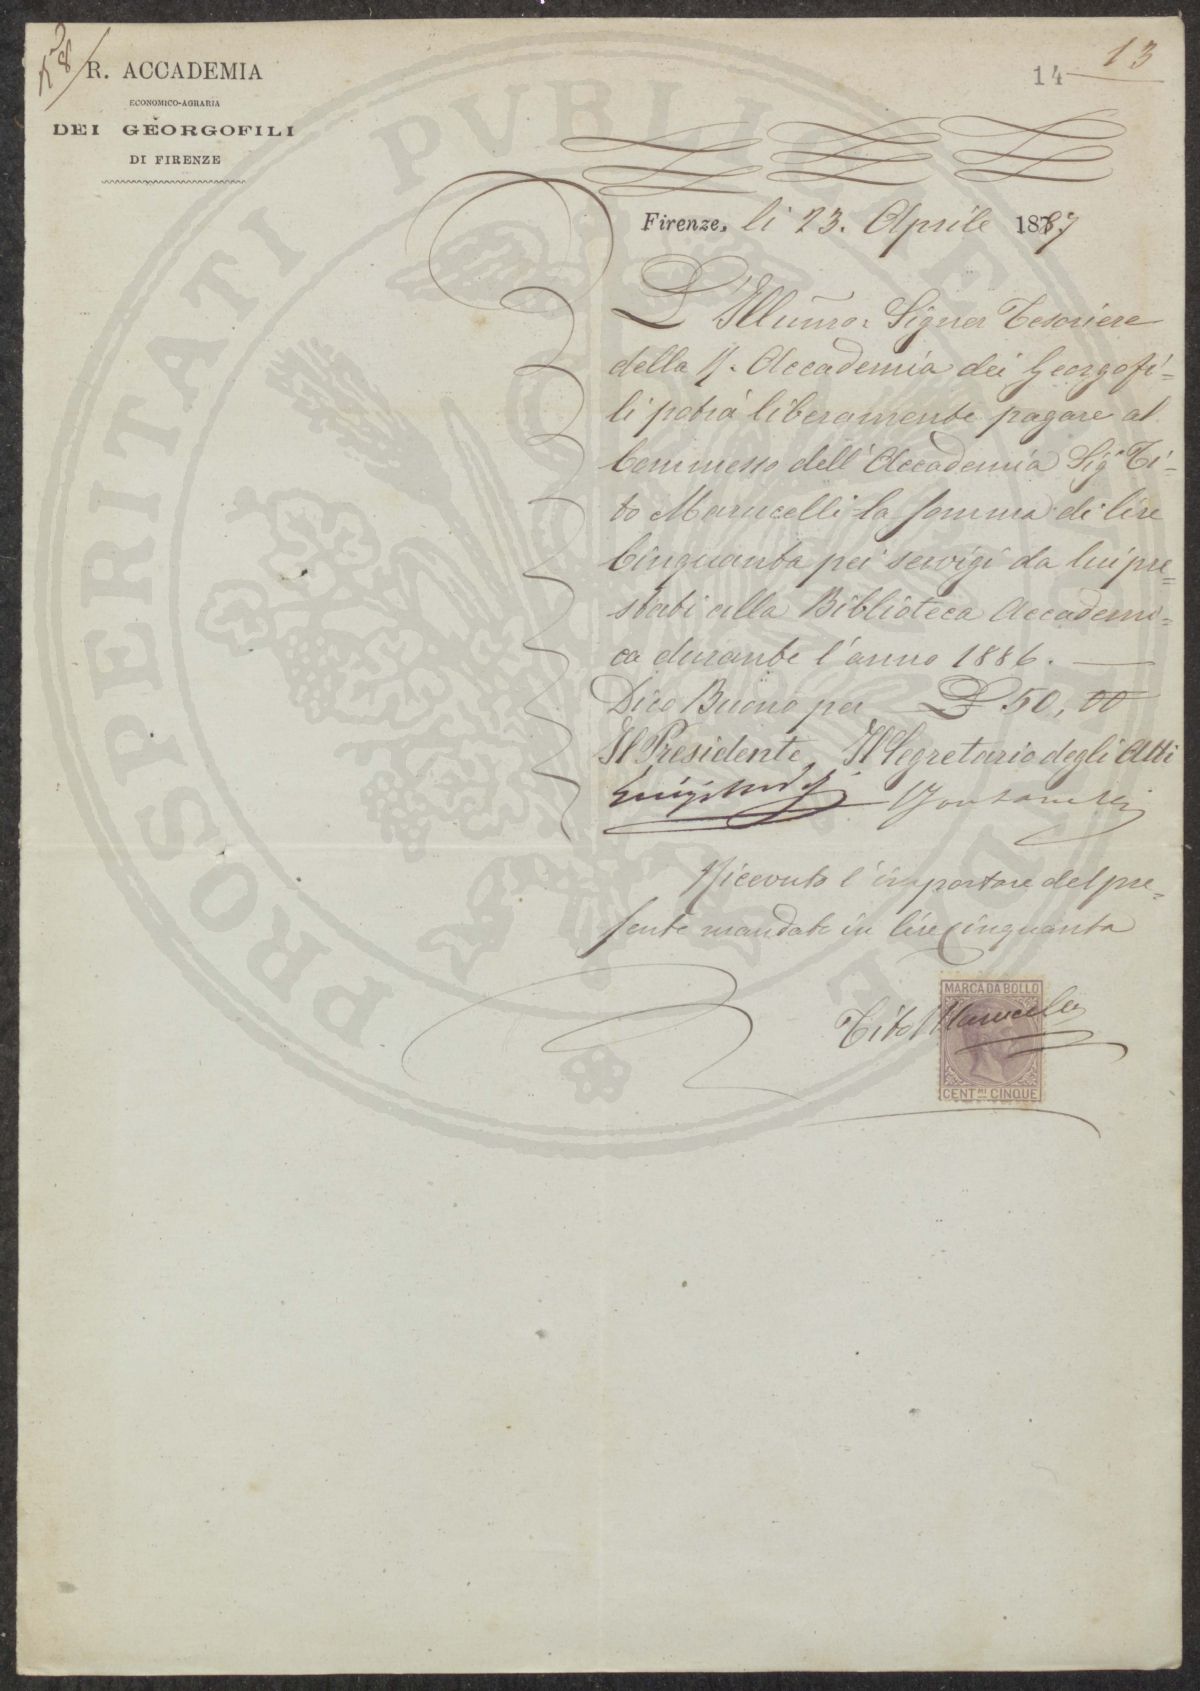 R. ACCADEMIA
ECONOMICO-AGRARIA
DEI GEORGOFILI
DI FIRENZE
14 13
Firenze, li 23. Aprile 1887
L'Illumo: Signor Tesoriere
della R. Accademia dei Georgofi=
li potrà liberamente pagare al
Commesso dell'Accademia Sigr Ti=
to Marucelli la somma di lire
Cinquanta pei servigi da lui pre=
stati alla Biblioteca Accademi=
ca durante l'anno 1886.
Dico Buono per L 50,00
Il Presidente Il Segretario degli Atti
Luigi
Ricevuto l'importare del pre=
sente mandato in lire cinquanta
Tito Marucelli
MARCA DA BOLLO
CENT.MI CINQUE
PROSPERITATI PVBLICAE